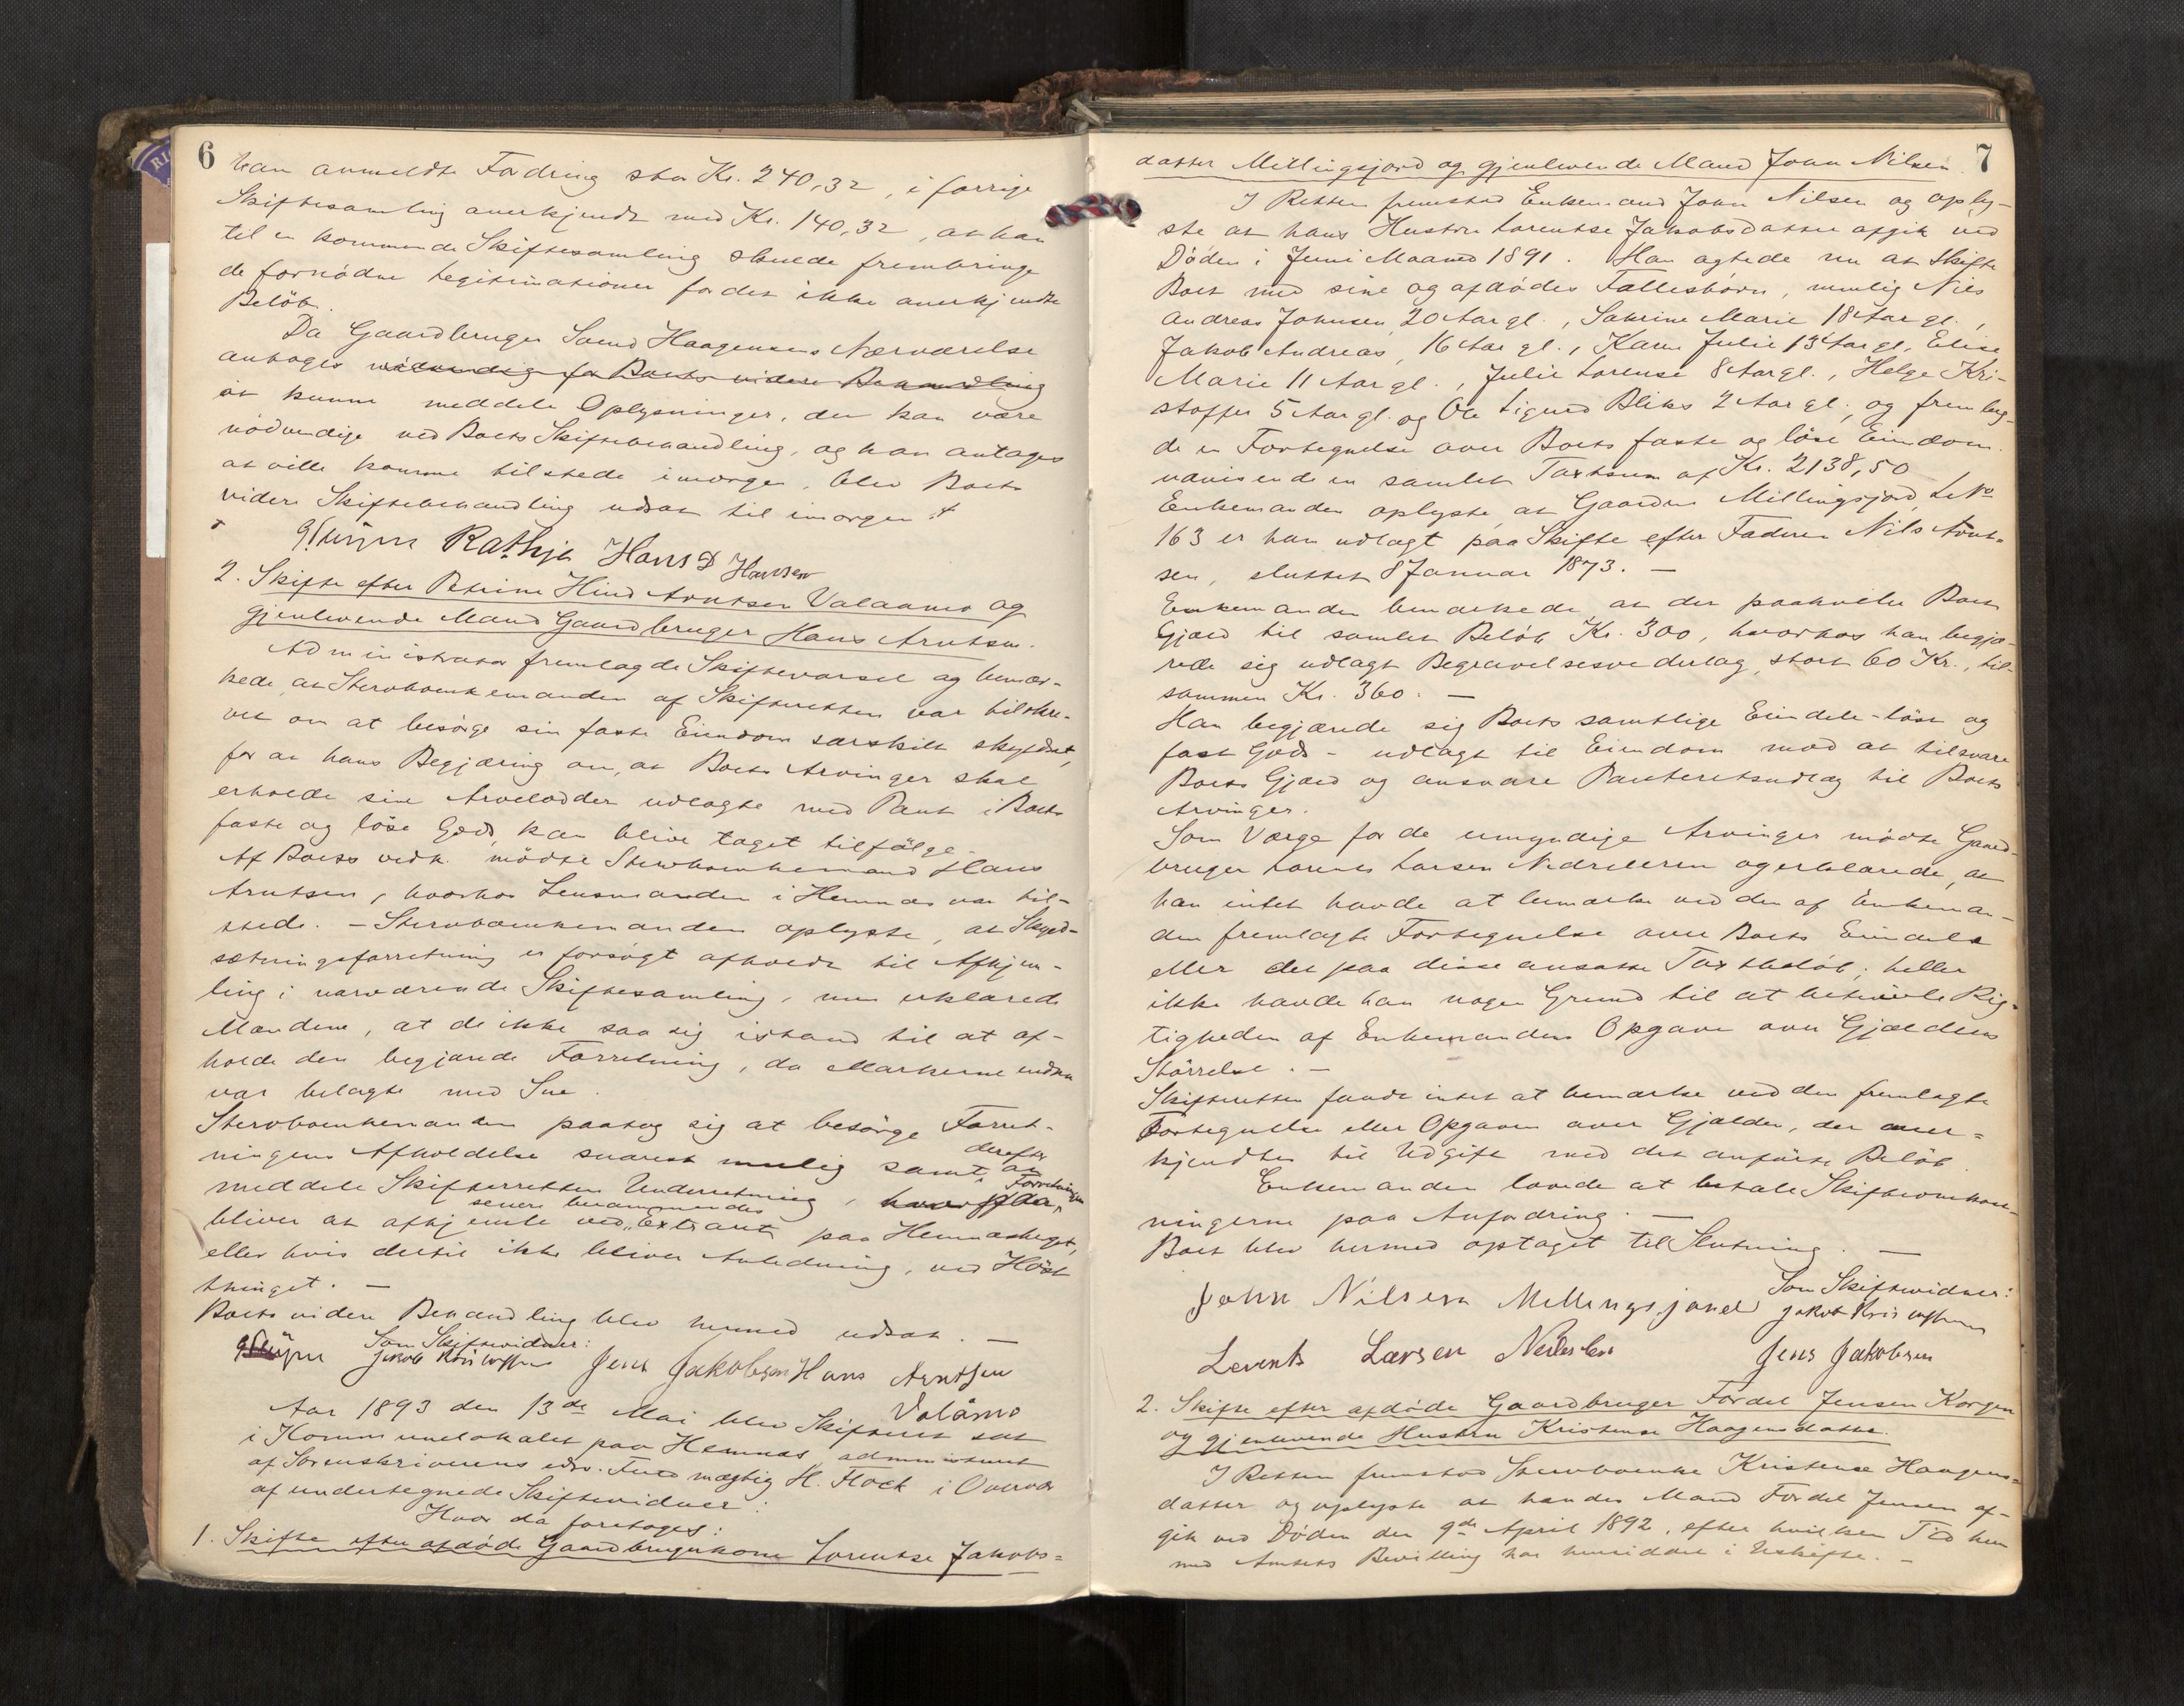 6
han anmeldte Fordring stor Kr. 240,32, i forrige
Skiftesamling anerkjendt med Kr. 140,32, at han
til en kommende Skiftesamling skulde frembringe
de fornødne Legitimationer for det ikke anerkjendte
Beløb.
Da Gaardbruger Svend Haagensens Nærværelse
antages nødvendig for Boets videre Behandling
at kunne meddele Oplysninger, der kan være
nødvendige ved Boets Skiftebehandling, og han antages
at ville komme tilstede imorgen, blev Boets
videre Skiftebehandling udsat til imorgen
Rathje Hans D Hansen
2. Skifte efter Petrine Hind Arntsen Valaamo og
gjenlevende Mand Gaardbruger Hans Arntsen.
Administrator fremlagde Skiftevarsel og bemær-
kede, at Stervboenkemanden af Skifteretten var tilskre-
vet om at besørge sin faste Eiendom særskilt skyldsat,
for at hans Begjæring om, at Boets Arvinger skal
erholde sine Arvelodder udlagte med Pant i Boets
faste og løse Gods kan blive taget tilfølge.
Af Boets vedk. mødte Stervboenkemand Hans
Arntsen, hvorhos Lensmanden i Hemnes var til-
stede. – Stervboenkemanden oplyste, at Skyld-
sætningsforretning er forsøgt afholdt til Afhjem-
ling i nærværende Skiftesamling, men erklærede
Mændene, at de ikke saa sig istand til at af-
holde den begjærede Forretning, da Markerne endnu
var belagte med Sne.
Stervboenkemanden paatog sig at besørge Forret-
ningens Afholdelse snarest mulig samt derefter at
meddele Skifteretten Underretning, hvorefter Forretningen
bliver at afhjemle ved senere berammendes Extraret paa Hemnesberget,
eller hvis dertil ikke bliver Anledning, ved Høst
thinget. –
Boets videre Behandling blev hermed udsat. –
Som Skiftevidner:
Jakob Kristoffersen Jens Jakobsen Hans Arntsen
Valåmo
Aar 1893 den 13de Mai blev Skifteret sat
i Kommunelokalet paa Hemnes administreret
af Sorenskriverens edsv. Fuldmægtig H. Flock i Overvær
af undertegnede Skiftevidner:
Hvor da foretoges:
1. Skifte efter afdøde Gaardbrugerkone Lorentse Jakobs=
7
datter Millingsjord og gjenlevende Mand John Nilsen.
I Retten fremstod Enkemand John Nilsen og oply-
ste at hans Hustru Lorentse Jakobsdatter afgik ved
Døden i Juni Maaned 1891. Han agtede nu at skifte
Boet med sine og afdødes Fællesbørn, nemlig Nils
Andreas Johnsen 20 Aar gl., Sabrine Marie 18 Aar gl.,
Jakob Andreas, 16 Aar gl., Karen Julie 13 Aar gl, Elise
Marie 11 Aar gl., Julie Lorense 8 Aar gl., Helge Kri-
stoffer 5 Aar gl. og Ole Sigurd Bliks 2 Aar gl., og fremlag-
de en Fortegnelse over Boets faste og løse Eiendom.
udvisende en samlet Taxtsum af Kr. 2138,50
Enkemanden oplyste, at Gaarden Millingsjord, L No
163 er ham udlagt paa Skifte efter Faderen Nils Arnt-
sen, sluttet 8 Januar 1873. –
Enkemanden bemærkede, at der paahviler Boet
Gjæld til samlet Beløb Kr. 300, hvorhos han begjæ-
rede sig udlagt Begravelsesvederlag, stort 60 Kr., til-
sammen Kr. 360. –
Han begjærede sig Boets samtlige Eiendele – løst og
fast Gods – udlagt til Eiendom mod at tilsvare
Boets Gjæld og ansvare Panteretsudlæg til Boets
Arvinger.
Som Værge for de umyndige Arvinger mødte Gaard-
bruger Lorents Larsen Nedreleren og erklærede, at
han intet havde at bemærke ved den af Enkeman-
den fremlagte Fortegnelse over Boets Eiendele
eller det paa disse ansatte Taxtbeløb; heller
ikke havde han nogen Grund til at betvivle Rig-
tigheden af Enkemandens Opgave over Gjældens
Størrelse. –
Skifteretten fandt intet at bemærke ved den fremlagte
Fortegnelse eller Opgaven over Gjælden, der aner-
kjendtes til Udgift med det anførte Beløb
Enkemanden lovede at betale Skifteomkost-
ningerne paa Anfordring. –
Boet blev hermed optaget til Slutning. –
Som Skiftevidner:
John Nilsen Mellingsjord Jakob Kristoffersen
Lorents Larsen Jens Jakobsen
2. Skifte efter afdøde Gaardbruger Fordel Jensen Korgen
og gjenlevende Hustru Kristense Haagensdatter.
I Retten fremstod Stervboenke Kristense Haagens=
datter og oplyste at hendes Mand Fordel Jensen af-
gik ved Døden den 9de April 1892, efter hvilken Tid hun
med Amtets Bevilling har hensiddet i Uskifte. –